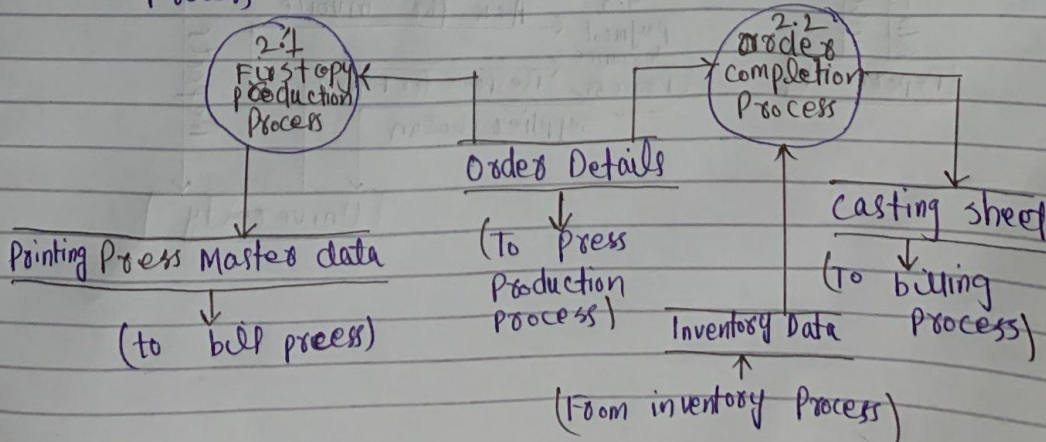 Process
2.1
First copy
production
Process
2.2
order
completion
Process
Order Details
(To Press
Production
process)
Casting sheet
(To billing
Process)
Printing Press Master data
(to bill preess)
Inventory Data
(From inventory Process)